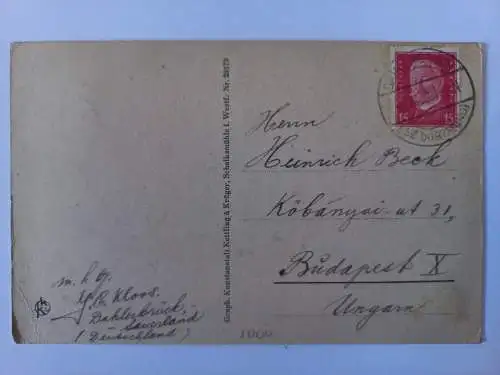 Herrn
Heinrich Beck
Köbányai-ut 31,
Budapest X
Ungarn
m. h. Gr.
Kloos.
Dahlerbrück,
Sauerland
(Deutschland)
Graph. Kunstanstalt Kettling & Krüger, Schalksmühle i. Westf. Nr. 28179
15 15
K